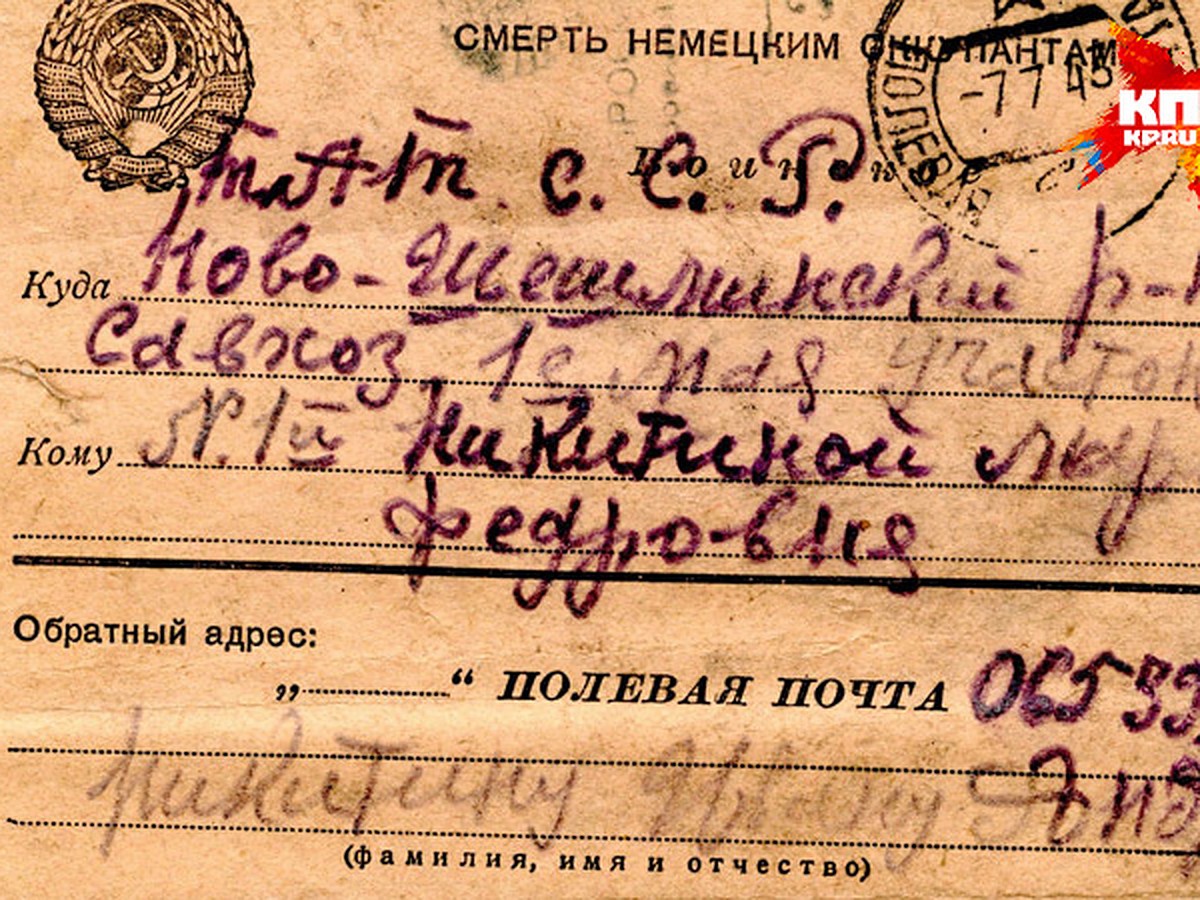 СМЕРТЬ НЕМЕЦКИМ ОККУПАНТАМ
-7 7 43
КП
KP.RU
ТАТ. С. С. Р.
Куда Ново-Шешминский р-н
Савхоз 1е Мая участок
Кому N. 1й Никитиной
Федровня
Обратный адрес:
„ “ ПОЛЕВАЯ ПОЧТА
Никитину Ивану
(фамилия, имя и отчество)